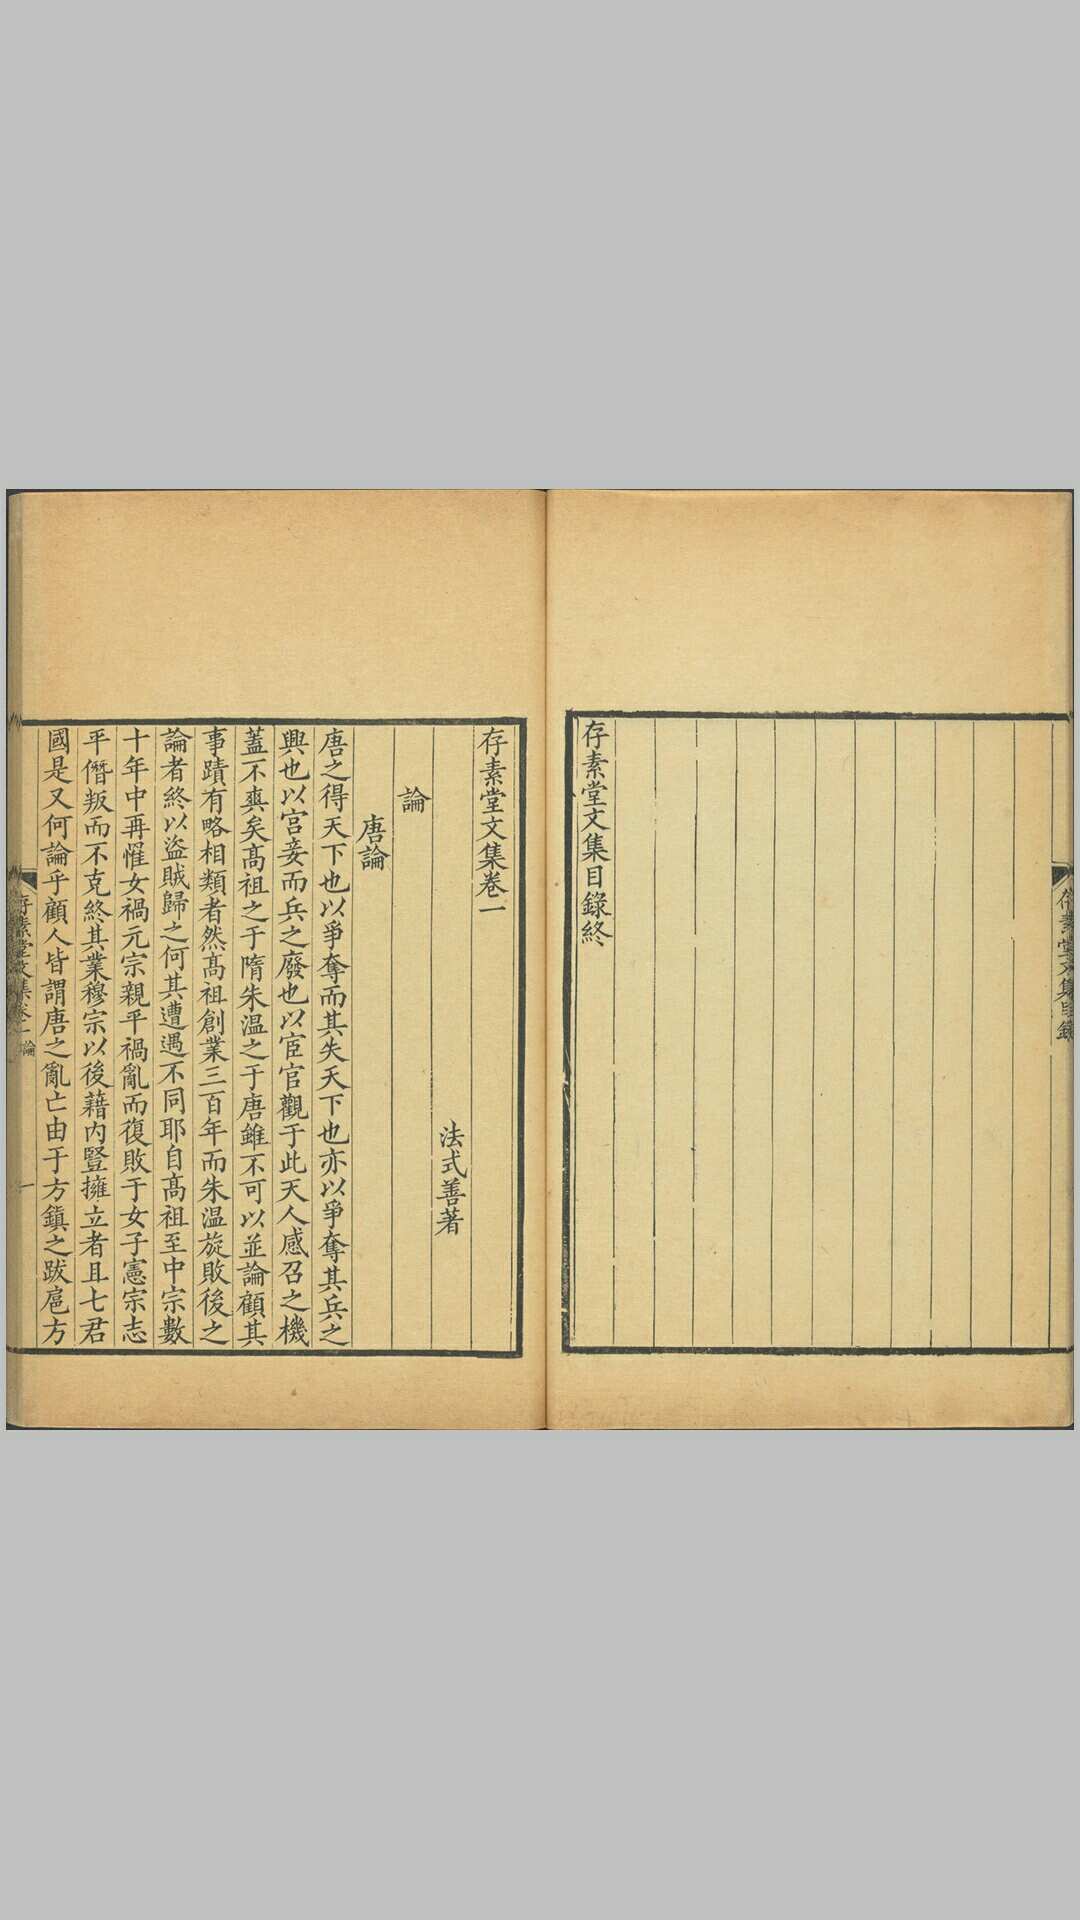 存素堂文集目錄
存素堂文集目錄終
存素堂文集卷一
法式善著
論
唐論
唐之得天下也以爭奪而其失天下也亦以爭奪其兵之
興也以宮妾而兵之廢也以宦官觀于此天人感召之機
蓋不爽矣髙祖之于隋朱温之于唐雖不可以並論顧其
事蹟有略相類者然髙祖創業三百年而朱温旋敗後之
論者終以盜賊歸之何其遭遇不同耶自髙祖至中宗數
十年中再罹女禍元宗親平禍亂而復敗于女子憲宗志
平僭叛而不克終其業穆宗以後藉内豎擁立者且七君
國是又何論乎顧人皆謂唐之亂亡由于方鎮之跋扈方
存素堂文集卷一 論 一